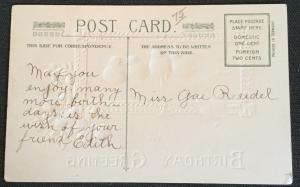 POST CARD.
75
THIS SIDE FOR CORRESPONDENCE
THE ADDRESS TO BE WRITTEN
ON THIS SIDE.
PLACE POSTAGE
STAMP HERE
DOMESTIC
ONE CENT
FOREIGN
TWO CENTS
PRINTED IN GERMANY
May you
enjoy many
more birth-
days is the
wish of your
friend Edith
Miss Gae Reidel
BIRTHDAY GREETING